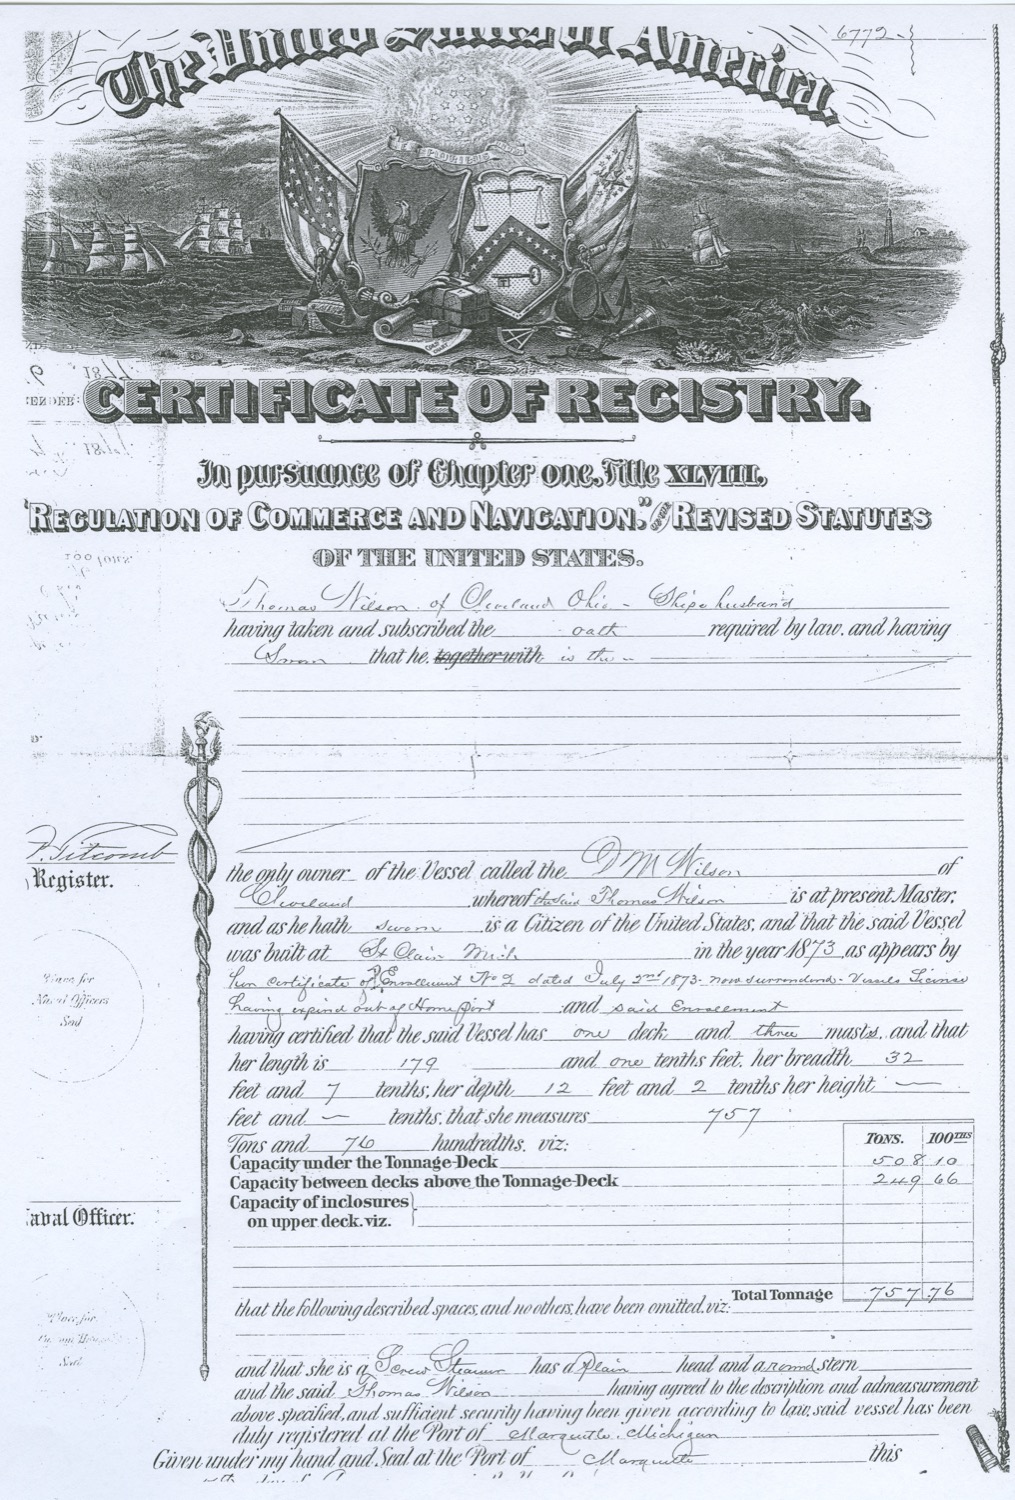 6772
The United States of America.
CERTIFICATE OF REGISTRY.
In pursuance of Chapter one, Title XLVIII.
"REGULATION OF COMMERCE AND NAVIGATION," of the REVISED STATUTES
OF THE UNITED STATES.
Thomas Wilson of Cleveland Ohio - Ships husband
having taken and subscribed the oath required by law, and having
Sworn that he together with is the
the only owner of the Vessel called the D M Wilson of
Cleveland whereof the said Thomas Wilson is at present Master,
and as he hath sworn is a Citizen of the United States, and that the said Vessel
was built at St Clair Mich in the year 1873 as appears by
certificate of P. Enrollment No 2 dated July 2nd 1873 now surrendered - Vessels License
having expired out of Home port and said Enrollment
having certified that the said Vessel has one deck and three masts, and that
her length is 179 and one tenths feet, her breadth 32
feet and 7 tenths, her depth 12 feet and 2 tenths her height —
feet and — tenths, that she measures 757
Tons and 76 hundredths, viz:
TONS. 100THS
Capacity under the Tonnage-Deck 508 10
Capacity between decks above the Tonnage-Deck 249 66
Capacity of inclosures
on upper deck. viz.
Total Tonnage 757 76
that the following described spaces, and no others, have been omitted, viz:
and that she is a Screw Steamer has a Plain head and a round stern
and the said Thomas Wilson having agreed to the description and admeasurement
above specified, and sufficient security having been given according to law, said vessel has been
duly registered at the Port of Marquette, Michigan
Given under my hand and Seal at the Port of Marquette this
Titcomb
Register.
Place for
Naval Officers
Seal
Naval Officer.
Place for
Seal